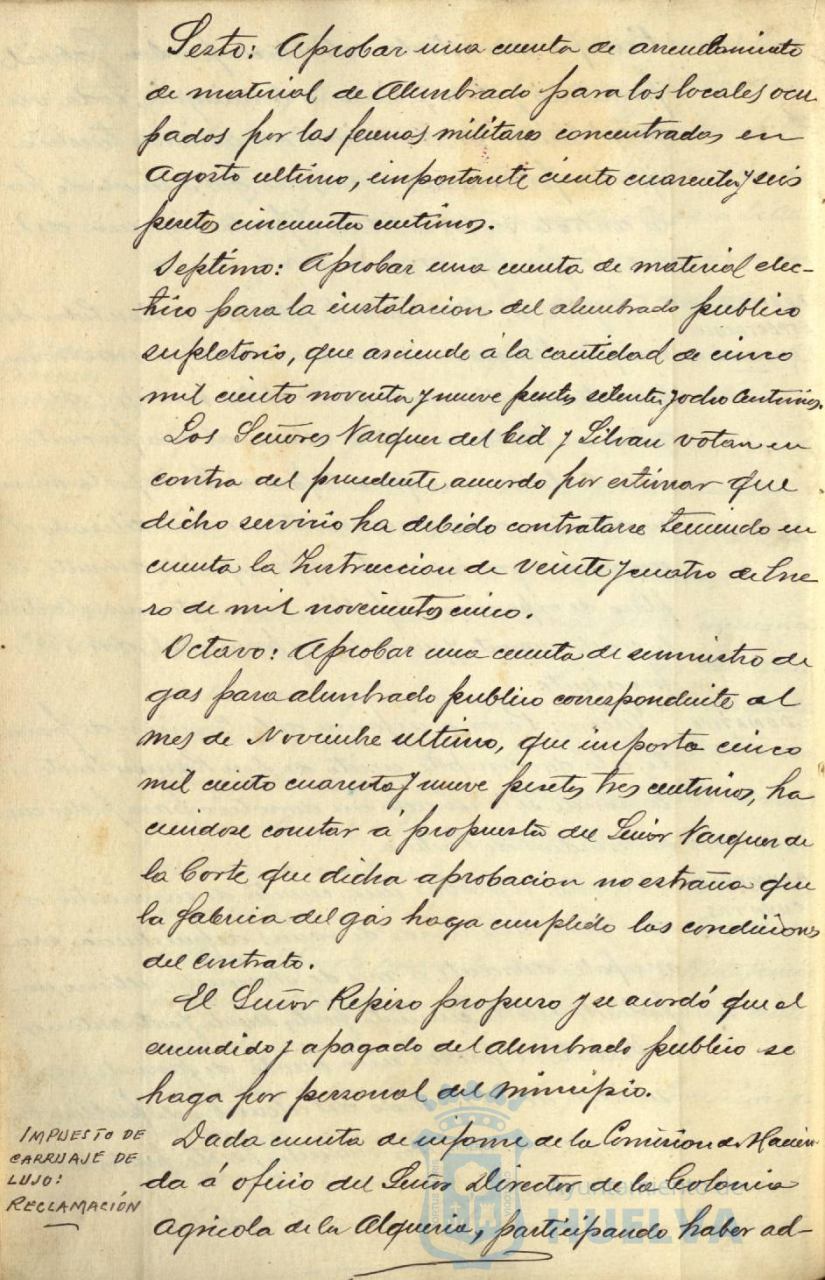 Sesto: Aprobar una cuenta de arrendamiento
de material de Alumbrado para los locales ocu
pados por las fuerzas militares concentradas en
Agosto ultimo, importante ciento cuarenta y seis
pesetas cincuenta centimos.
Septimo: Aprobar una cuenta de material elec-
trico para la instalacion del alumbrado publico
supletorio, que asciende á la cantidad de cinco
mil ciento noventa y nueve pesetas setenta y ocho centimos.
Los Señores Vazquez del Cid y Silvan votan en
contra del precedente acuerdo por estimar que
dicho servicio ha debido contratarse teniendo en
cuenta la Instruccion de veinte y cuatro de Ene
ro de mil novecientos cinco.
Octavo: Aprobar una cuenta de suministro de
gas para alumbrado publico correspondiente al
mes de Noviembre ultimo, que importa cinco
mil ciento cuarenta y nueve pesetas tres centimos, ha
ciendose constar á propuesta del Señor Vazquez de
la Corte que dicha aprobacion no estraña que
la fabrica del gas haya cumplido las condiciones
del contrato.
El Señor Repiso propuso y se acordó que el
encendido y apagado del alumbrado publico se
haga por personal del Municipio.
IMPUESTO DE
CARRUAJE DE
LUJO:
RECLAMACIÓN
Dada cuenta de informe de la Comision de Hacien-
da á oficio del Señor Director de la Colonia
Agricola de la Alqueria, participando haber ad-
Ayuntamiento de
HUELVA